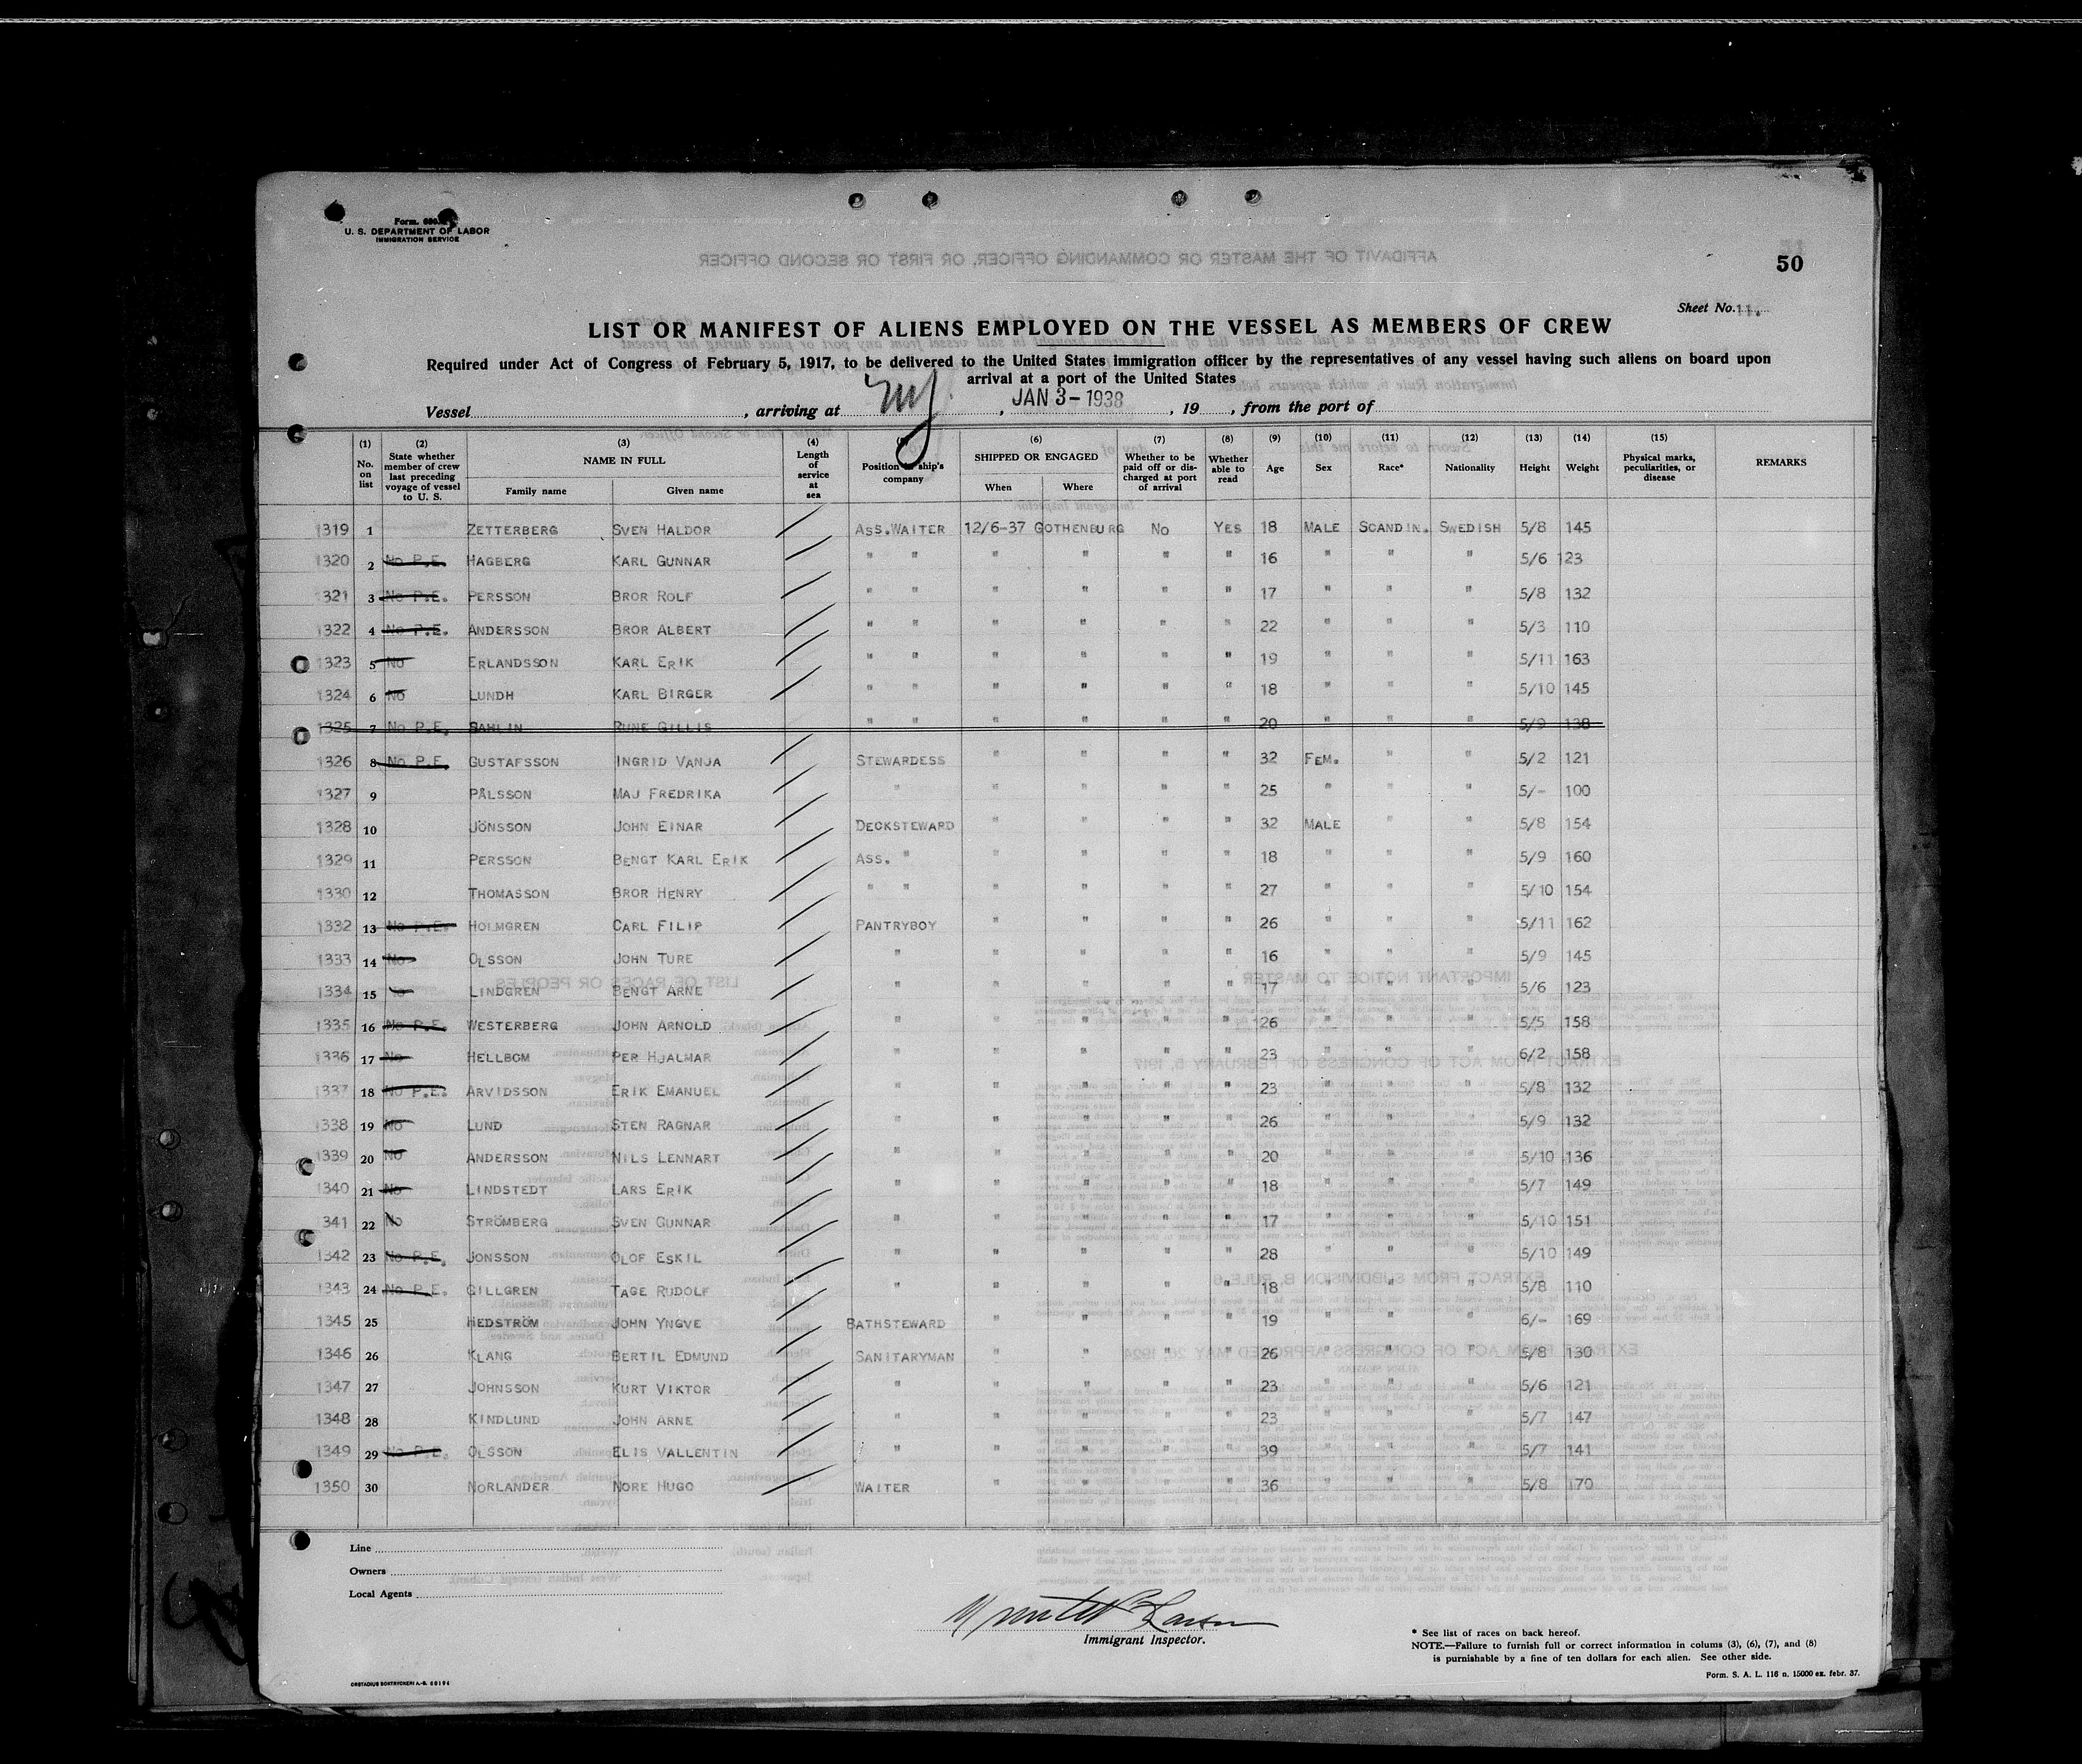 Form. 680
U. S. DEPARTMENT OF LABOR
IMMIGRATION SERVICE
50
Sheet No. 11.
LIST OR MANIFEST OF ALIENS EMPLOYED ON THE VESSEL AS MEMBERS OF CREW
Required under Act of Congress of February 5, 1917, to be delivered to the United States immigration officer by the representatives of any vessel having such aliens on board upon
arrival at a port of the United States
Vessel , arriving at NY , JAN 3-1938 , 19 , from the port of
(1) No. on list (2) State whether member of crew last preceding voyage of vessel to U. S. (3) NAME IN FULL Family name Given name (4) Length of service at sea Position in ship's company (6) SHIPPED OR ENGAGED When Where (7) Whether to be paid off or discharged at port of arrival (8) Whether able to read (9) Age (10) Sex (11) Race* (12) Nationality (13) Height (14) Weight (15) Physical marks, peculiarities, or disease REMARKS
1319 1 ZETTERBERG SVEN HALDOR ASS.WAITER 12/6-37 GOTHENBURG NO YES 18 MALE SCANDIN. SWEDISH 5/8 145
1320 2 NO P.E. HAGBERG KARL GUNNAR " " " " " " 16 " " " 5/6 123
1321 3 NO P.E. PERSSON BROR ROLF " " " " " " 17 " " " 5/8 132
1322 4 NO P.E. ANDERSSON BROR ALBERT " " " " " " 22 " " " 5/3 110
1323 5 NO ERLANDSSON KARL ERIK " " " " " " 19 " " " 5/11 163
1324 6 NO LUNDH KARL BIRGER " " " " " " 18 " " " 5/10 145
1325 7 NO P.E. SAHLIN RUNE GILLIS " " " " " " 20 " " " 5/9 138
1326 8 NO P.E. GUSTAFSSON INGRID VANJA STEWARDESS " " " " 32 FEM. " " 5/2 121
1327 9 PÅLSSON MAJ FREDRIKA " " " " " 25 " " " 5/- 100
1328 10 JÖNSSON JOHN EINAR DECKSTEWARD " " " " 32 MALE " " 5/8 154
1329 11 PERSSON BENGT KARL ERIK ASS. " " " " " 18 " " " 5/9 160
1330 12 THOMASSON BROR HENRY " " " " " " 27 " " " 5/10 154
1332 13 NO P.E. HOLMGREN CARL FILIP PANTRYBOY " " " " 26 " " " 5/11 162
1333 14 NO OLSSON JOHN TURE " " " " " 16 " " " 5/9 145
1334 15 LINDGREN BENGT ARNE " " " " " 17 " " " 5/6 123
1335 16 NO P.E. WESTERBERG JOHN ARNOLD " " " " " 26 " " " 5/5 158
1336 17 NO HELLBOM PER HJALMAR " " " " " 23 " " " 6/2 158
1337 18 NO P.E. ARVIDSSON ERIK EMANUEL " " " " " 23 " " " 5/8 132
1338 19 NO LUND STEN RAGNAR " " " " " 26 " " " 5/9 132
1339 20 NO ANDERSSON NILS LENNART " " " " " 20 " " " 5/10 136
1340 21 NO LINDSTEDT LARS ERIK " " " " " 18 " " " 5/7 149
341 22 NO STRÖMBERG SVEN GUNNAR " " " " " 17 " " " 5/10 151
1342 23 NO P.E. JONSSON OLOF ESKIL " " " " " 28 " " " 5/10 149
1343 24 NO P.E. GILLGREN TAGE RUDOLF " " " " " 18 " " " 5/8 110
1345 25 HEDSTRÖM JOHN YNGVE BATHSTEWARD " " " " 19 " " " 6/- 169
1346 26 KLANG BERTIL EDMUND SANITARYMAN " " " " 26 " " " 5/8 130
1347 27 JOHNSSON KURT VIKTOR " " " " " 23 " " " 5/6 121
1348 28 KINDLUND JOHN ARNE " " " " " 23 " " " 5/7 147
1349 29 NO P.E. OLSSON ELIS VALLENTIN " " " " " 39 " " " 5/7 141
1350 30 NORLANDER NORE HUGO WAITER " " " " 36 " " " 5/8 170
Line
Owners
Local Agents
Immigrant Inspector.
* See list of races on back hereof.
NOTE.—Failure to furnish full or correct information in colums (3), (6), (7), and (8)
is punishable by a fine of ten dollars for each alien. See other side.
Form. S. A. L. 116 n. 15000 ex. febr. 37.